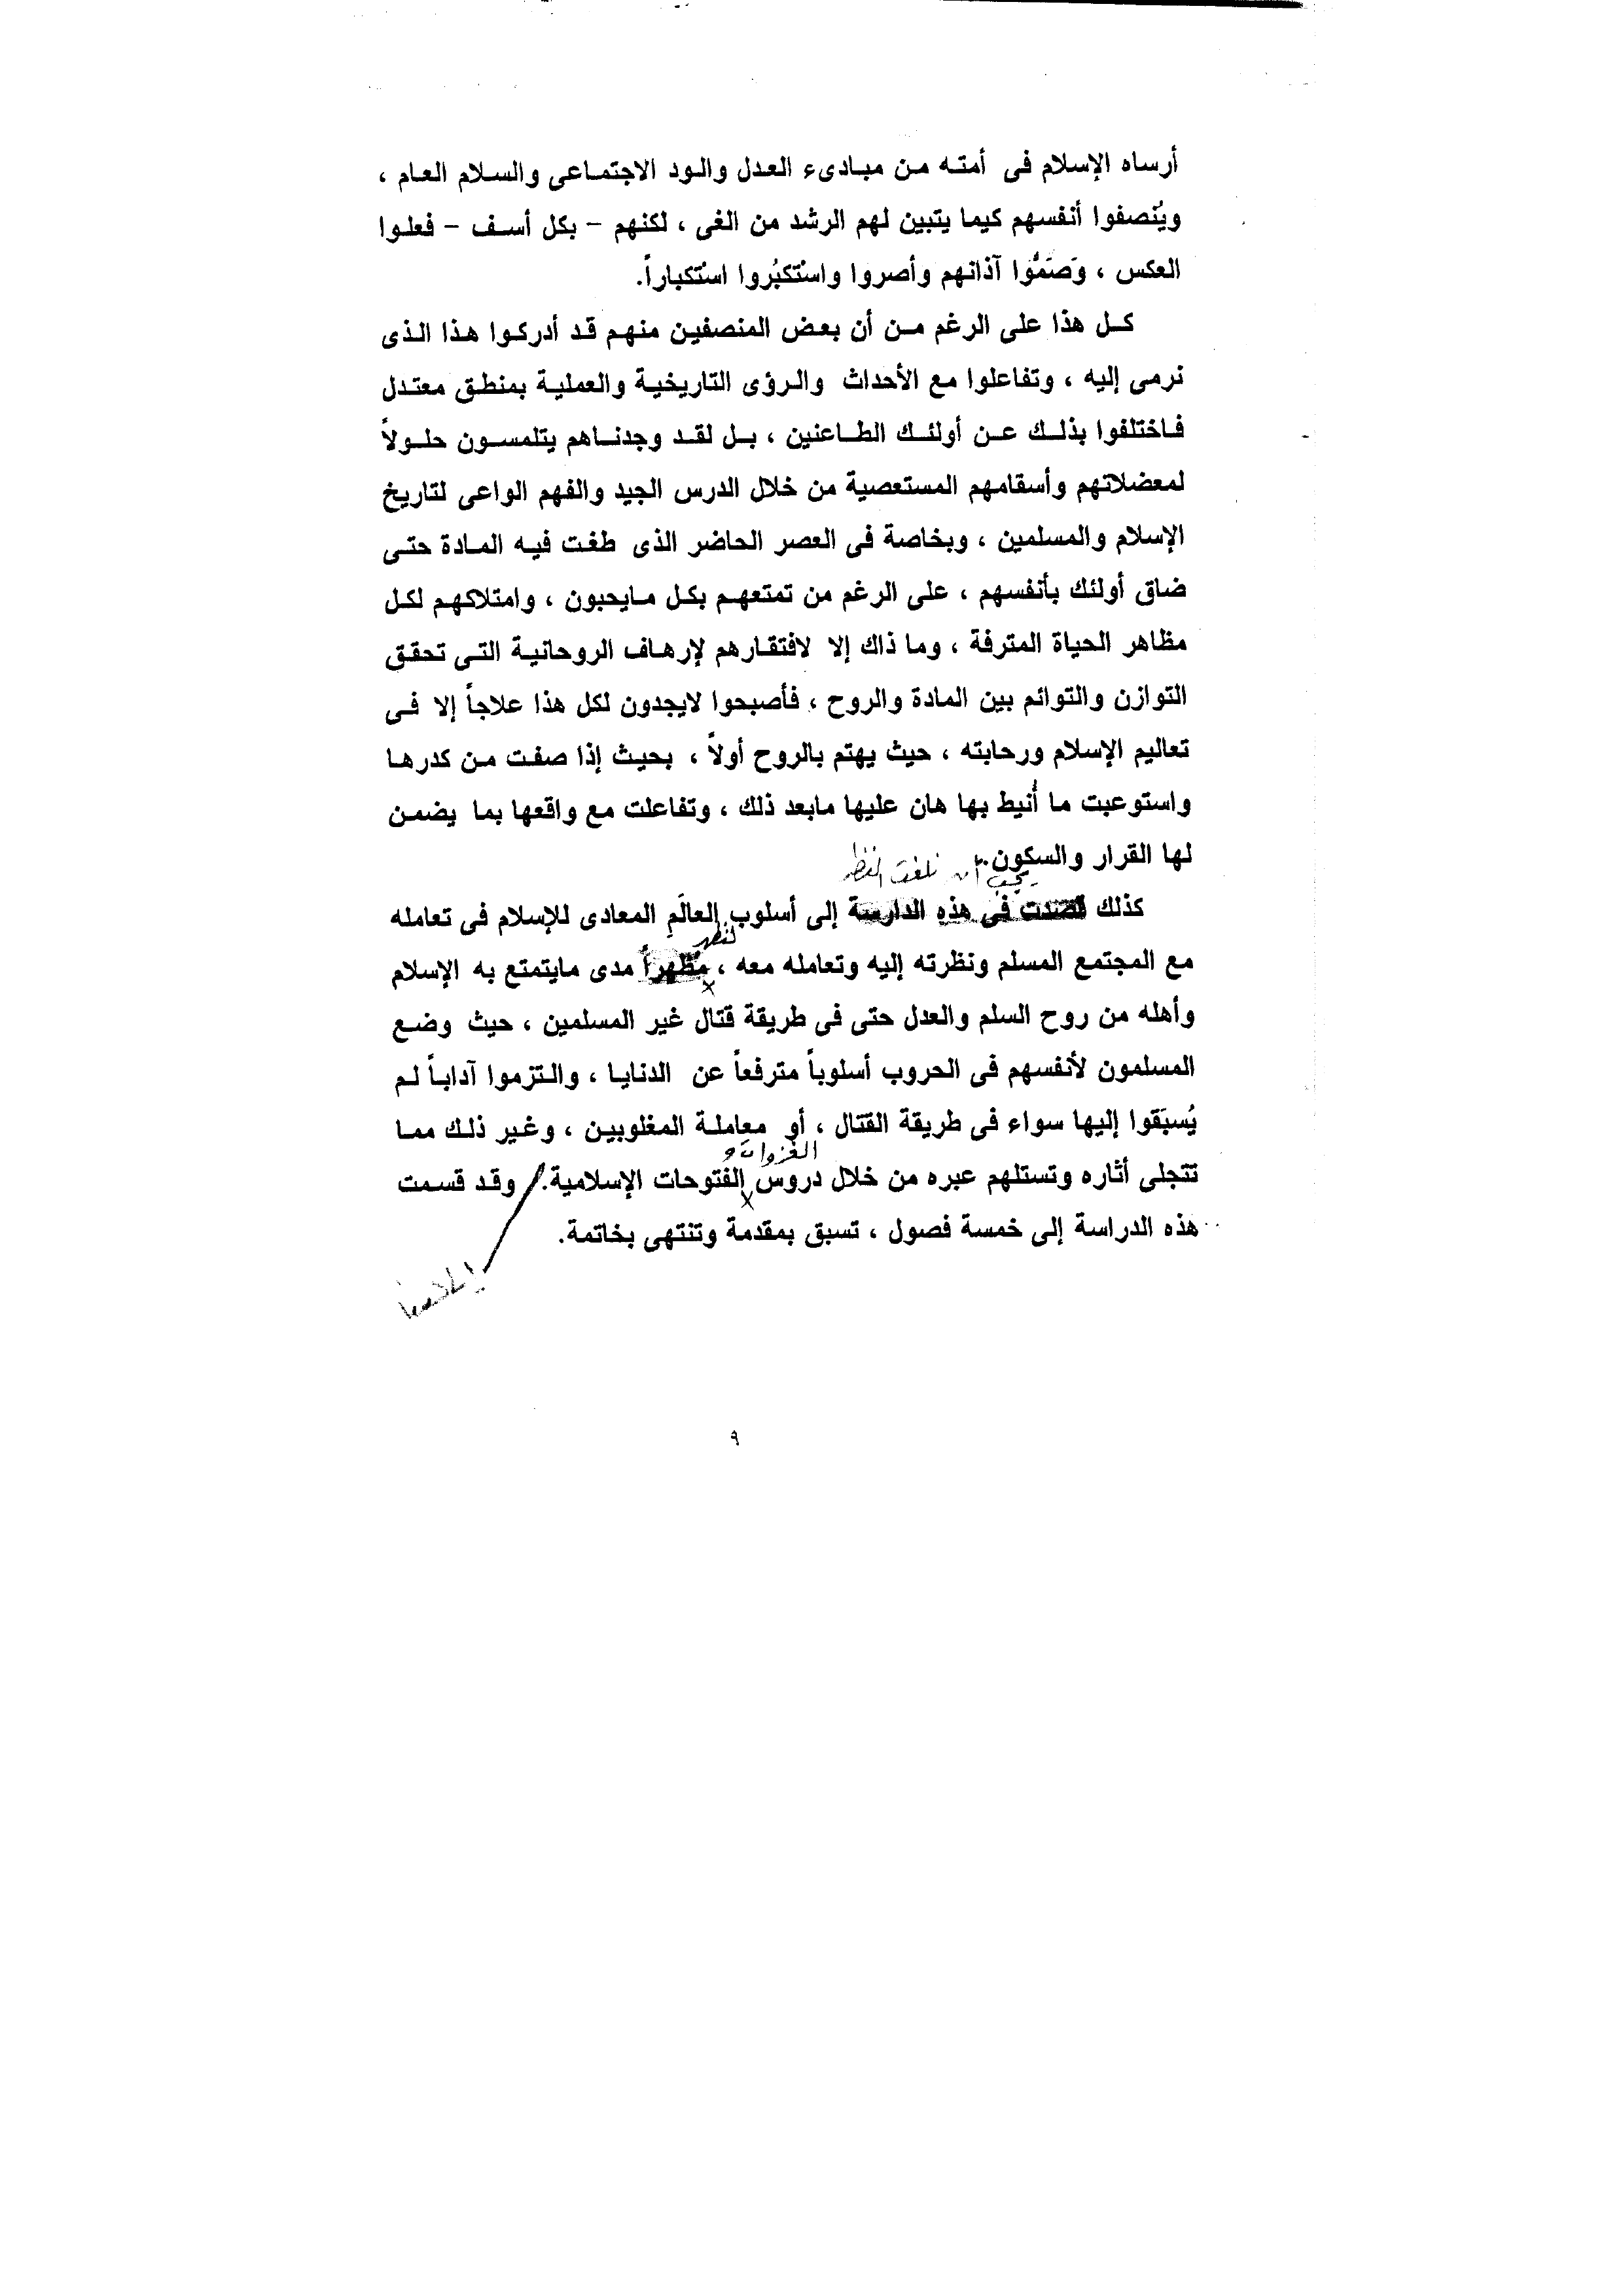 أرساه الإسلام فى أمته من مبادىء العدل والود الاجتماعى والسلام العام ،
ويُنصفوا أنفسهم كيما يتبين لهم الرشد من الغى ، لكنهم – بكل أسف – فعلوا
العكس ، وَصَمُّوا آذانهم وأصروا واسْتكبُروا اسْتكباراً.
كل هذا على الرغم من أن بعض المنصفين منهم قد أدركوا هذا الذى
نرمى إليه ، وتفاعلوا مع الأحداث والرؤى التاريخية والعملية بمنطق معتدل
فاختلفوا بذلك عن أولئك الطاعنين ، بل لقد وجدناهم يتلمسون حلولاً
لمعضلاتهم وأسقامهم المستعصية من خلال الدرس الجيد والفهم الواعى لتاريخ
الإسلام والمسلمين ، وبخاصة فى العصر الحاضر الذى طغت فيه المادة حتى
ضاق أولئك بأنفسهم ، على الرغم من تمتعهم بكل مايحبون ، وامتلاكهم لكل
مظاهر الحياة المترفة ، وما ذاك إلا لافتقارهم لإرهاف الروحانية التى تحقق
التوازن والتوائم بين المادة والروح ، فأصبحوا لايجدون لكل هذا علاجاً إلا فى
تعاليم الإسلام ورحابته ، حيث يهتم بالروح أولاً ، بحيث إذا صفت من كدرها
واستوعبت ما أُنيط بها هان عليها مابعد ذلك ، وتفاعلت مع واقعها بما يضمن
لها القرار والسكون.
يجب أن نلفت النظر
كذلك قصدت فى هذه الدارسة إلى أسلوب العالَمِ المعادى للإسلام فى تعامله
لنظهر
مع المجتمع المسلم ونظرته إليه وتعامله معه ، مظهراً مدى مايتمتع به الإسلام
وأهله من روح السلم والعدل حتى فى طريقة قتال غير المسلمين ، حيث وضع
المسلمون لأنفسهم فى الحروب أسلوباً مترفعاً عن الدنايا ، والتزموا آداباً لم
يُسبَقوا إليها سواء فى طريقة القتال ، أو معاملة المغلوبين ، وغير ذلك مما
الغزوات و
تتجلى أثاره وتستلهم عبره من خلال دروس الفتوحات الإسلامية. وقد قسمت
هذه الدراسة إلى خمسة فصول ، تسبق بمقدمة وتنتهى بخاتمة.
٩